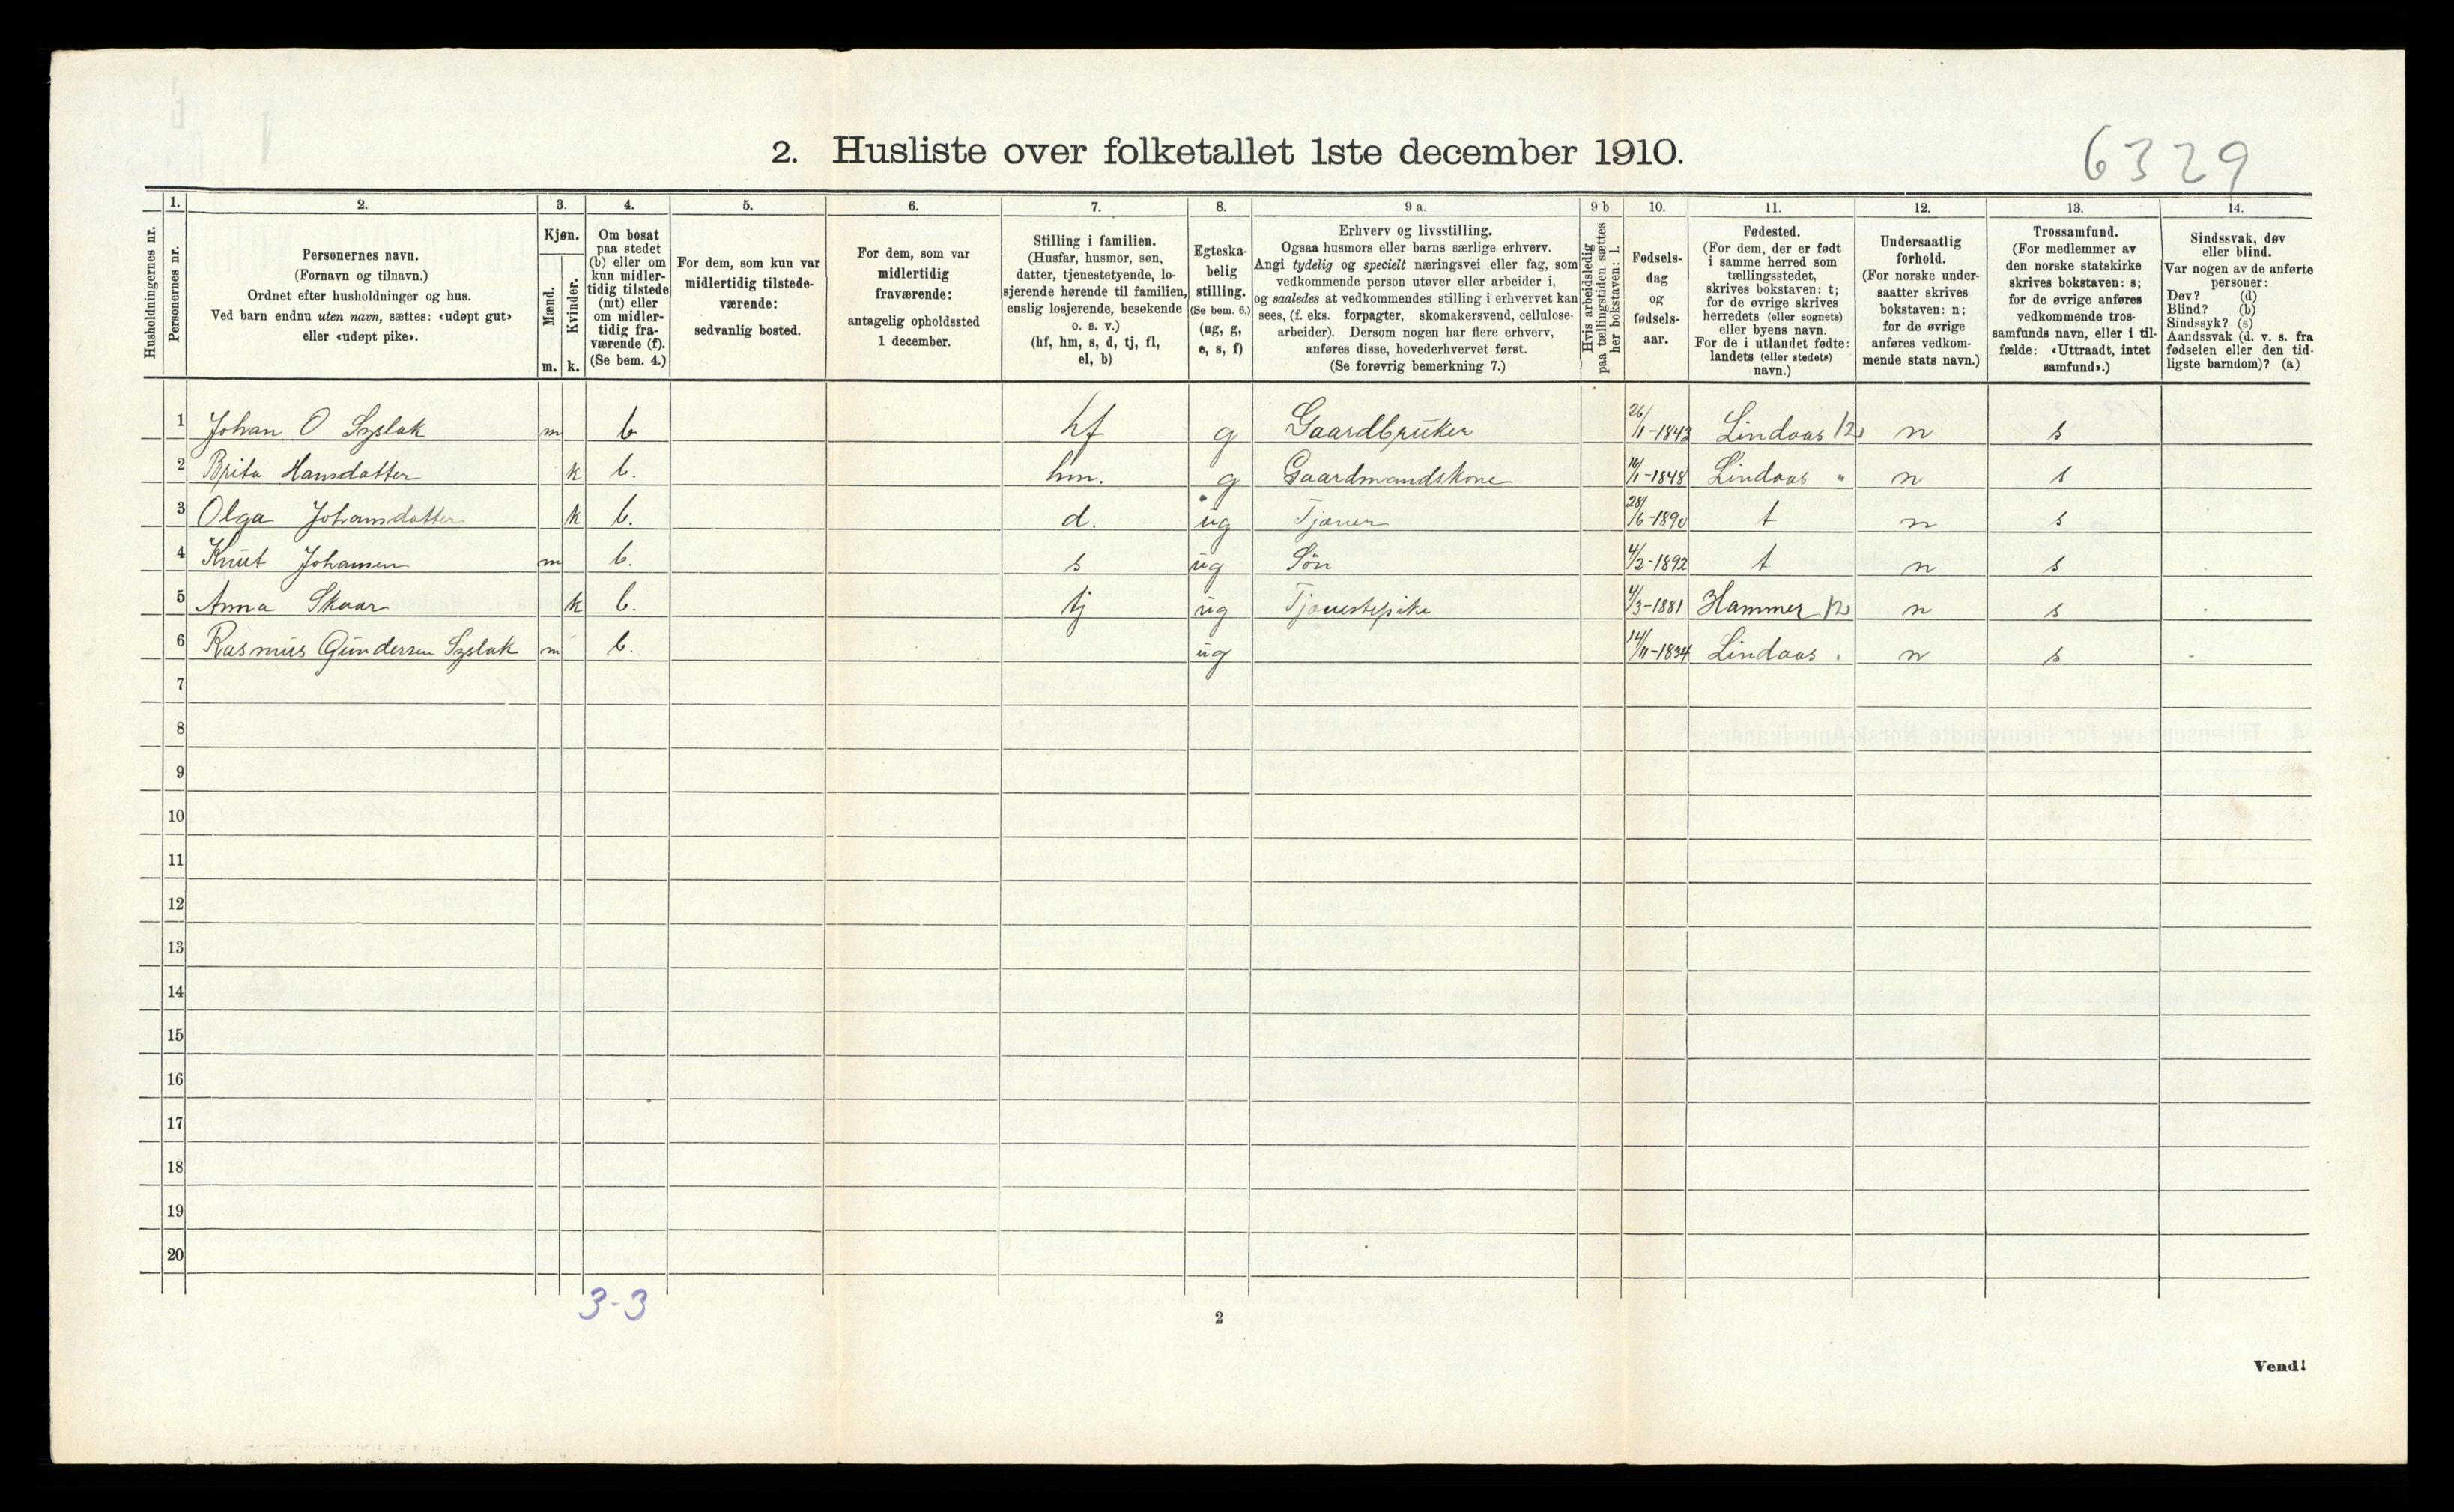 6329
2. Husliste over folketallet 1ste december 1910.
Husholdningernes nr.
1.
Personernes nr.
2.
Personernes navn.
(Fornavn og tilnavn.)
Ordnet efter husholdninger og hus.
Ved barn endnu uten navn, sættes: «udøpt gut»
eller «udøpt pike».
3.
Kjøn.
Mænd.
Kvinder.
m. k.
4.
Om bosat
paa stedet
(b) eller om
kun midler-
tidig tilstede
(mt) eller
om midler-
tidig fra-
værende (f).
(Se bem. 4.)
5.
For dem, som kun var
midlertidig tilstede-
værende:
sedvanlig bosted.
6.
For dem, som var
midlertidig
fraværende:
antagelig opholdssted
1 december.
7.
Stilling i familien.
(Husfar, husmor, søn,
datter, tjenestetyende, lo-
sjerende hørende til familien,
enslig losjerende, besøkende
o. s. v.)
(hf, hm, s, d, tj, fl,
el, b)
8.
Egteska-
belig
stilling.
(Se bem. 6.)
(ug, g,
e, s, f)
9 a.
Erhverv og livsstilling.
Ogsaa husmors eller barns særlige erhverv.
Angi tydelig og specielt næringsvei eller fag, som
vedkommende person utøver eller arbeider i,
og saaledes at vedkommendes stilling i erhvervet kan
sees, (f. eks. forpagter, skomakersvend, cellulose-
arbeider). Dersom nogen har flere erhverv,
anføres disse, hovederhvervet først.
(Se forøvrig bemerkning 7.)
9 b
Hvis arbeidsledig
paa tællingstiden sættes
her bokstaven: l.
10.
Fødsels-
dag
og
fødsels-
aar.
11.
Fødested.
(For dem, der er født
i samme herred som
tællingsstedet,
skrives bokstaven: t;
for de øvrige skrives
herredets (eller sognets)
eller byens navn.
For de i utlandet fødte:
landets (eller stedets)
navn.)
12.
Undersaatlig
forhold.
(For norske under-
saatter skrives
bokstaven: n;
for de øvrige
anføres vedkom-
mende stats navn.)
13.
Trossamfund.
(For medlemmer av
den norske statskirke
skrives bokstaven: s;
for de øvrige anføres
vedkommende tros-
samfunds navn, eller i til-
fælde: «Uttraadt, intet
samfund».)
14.
Sindssvak, døv
eller blind.
Var nogen av de anførte
personer:
Døv? (d)
Blind? (b)
Sindssyk? (s)
Aandssvak (d. v. s. fra
fødselen eller den tid-
ligste barndom)? (a)
1 Johan O Syslak m b hf g Gaardbruker 26/1-1843 Lindaas 12 n s
2 Brita Hansdatter k b. hm. g Gaardmandskone 16/1-1848 Lindaas " n s
3 Olga Johansdatter k b. d. ug Tjener 28/6-1890 t n s
4 Knut Johansen m b. s ug Søn 4/2-1892 t n s
5 Anna Skaar k b. tj ug Tjenestepike 4/3-1881 Hammer 12 n s
6 Rasmus Gundersen Syslak m b. ug 14/11-1834 Lindaas . n s
7
8
9
10
11
12
13
14
15
16
17
18
19
20
3-3
2
Vend!